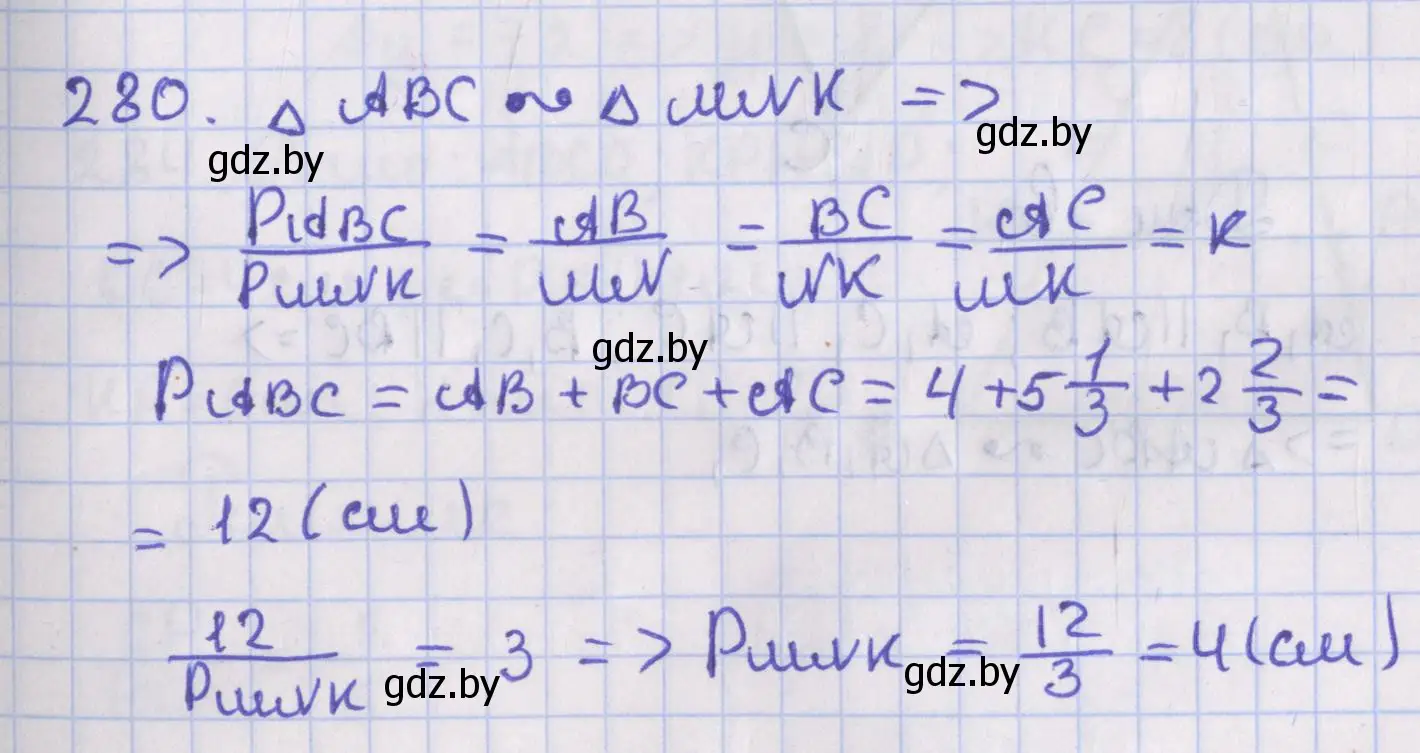 280. △ ABC ∾ △ MNK =>
gdz.by gdz.by
=> P ABC / P MNK = AB / MN = BC / NK = AC / MK = k
gdz.by
P ABC = AB + BC + AC = 4 + 5 1/3 + 2 2/3 =
= 12 (см)
12 / P MNK = 3 => P MNK = 12 / 3 = 4 (см)
gdz.by gdz.by